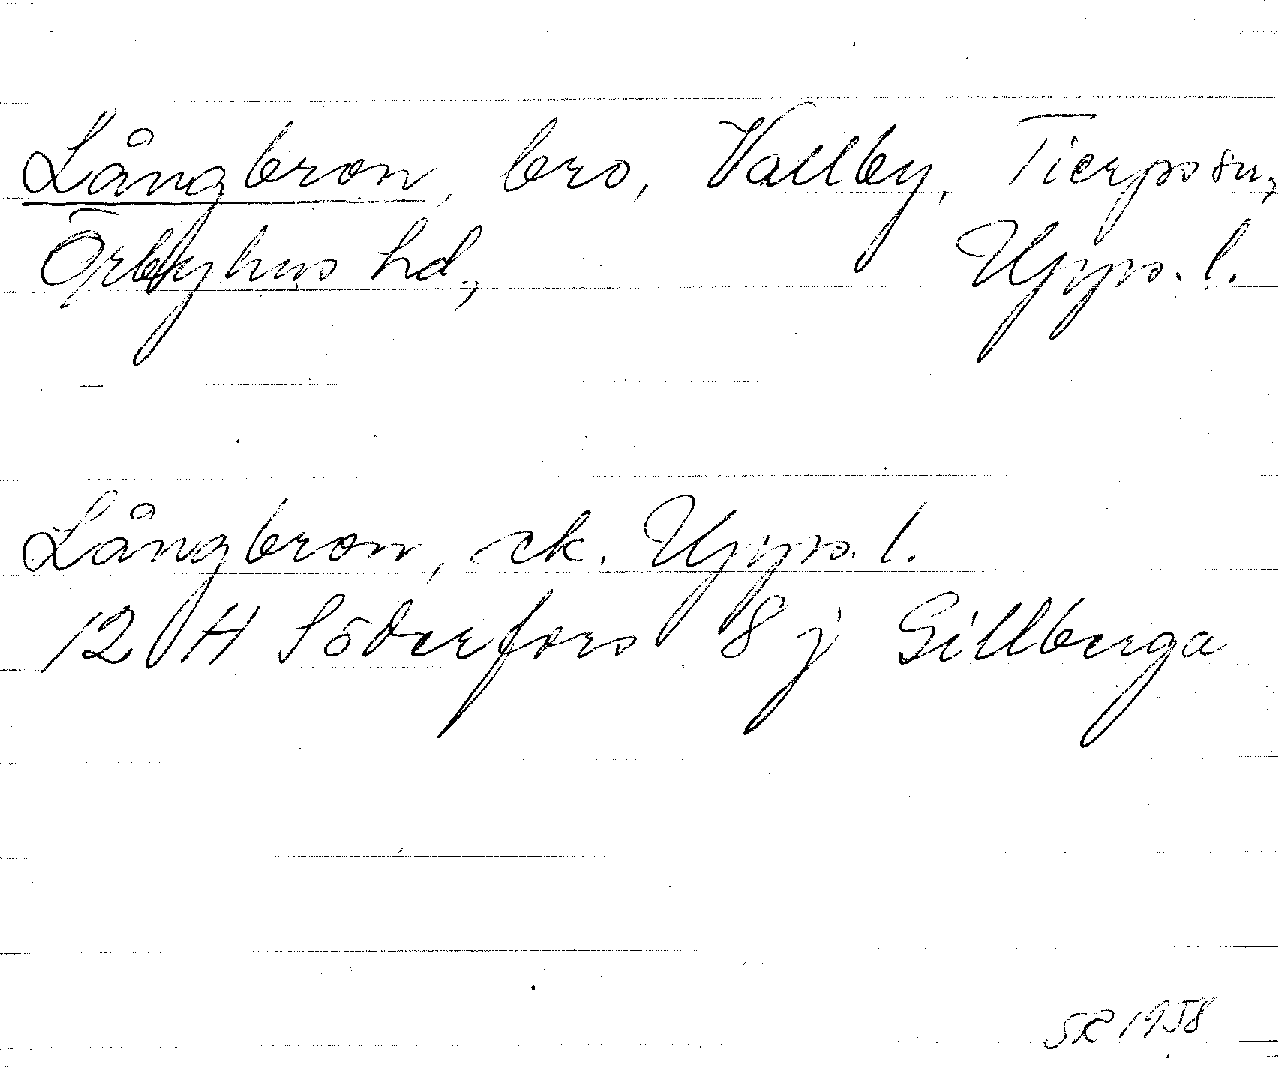 Långbron, bro, Vallby, Tierps sn,
Örbyhus hd, Upps. l.
Långbron, ek. Upps. l.
12 H Söderfors 8 j Gillberga
SR 1958